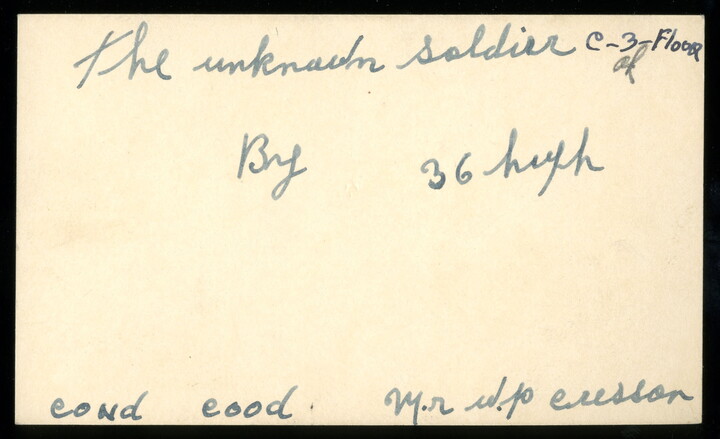 The unknown soldier C-3-Floor
of
By 36 high
cond cood Mr W.P cresson